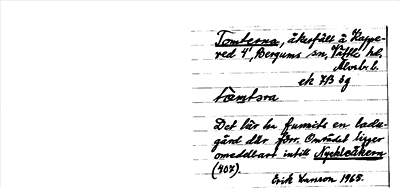 Tomterna, åkerfält å Kappe-
red 4¹, Bergums sn, Vättle hd,
Älvsb. l.
ek 7B 6g
Det lär ha funnits en ladu-
gård där förr. Området ligger
omedelbart intill Nyckleåkern
(407).
Erik 1965.